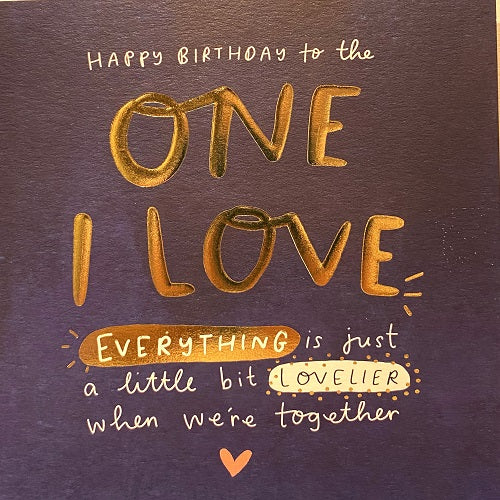 HAPPY BIRTHDAY to the
ONE
I LOVE
EVERYTHING is just
a little bit LOVELIER
when we're together